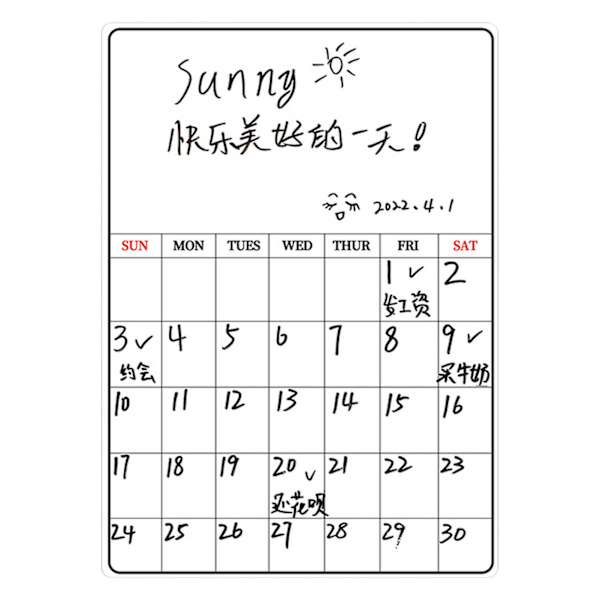 sunny
快乐美好的一天!
2022.4.1
SUN MON TUES WED THUR FRI SAT
1 2
发工资
3 4 5 6 7 8 9
约会 买牛奶
10 11 12 13 14 15 16
17 18 19 20 21 22 23
还花呗
24 25 26 27 28 29 30